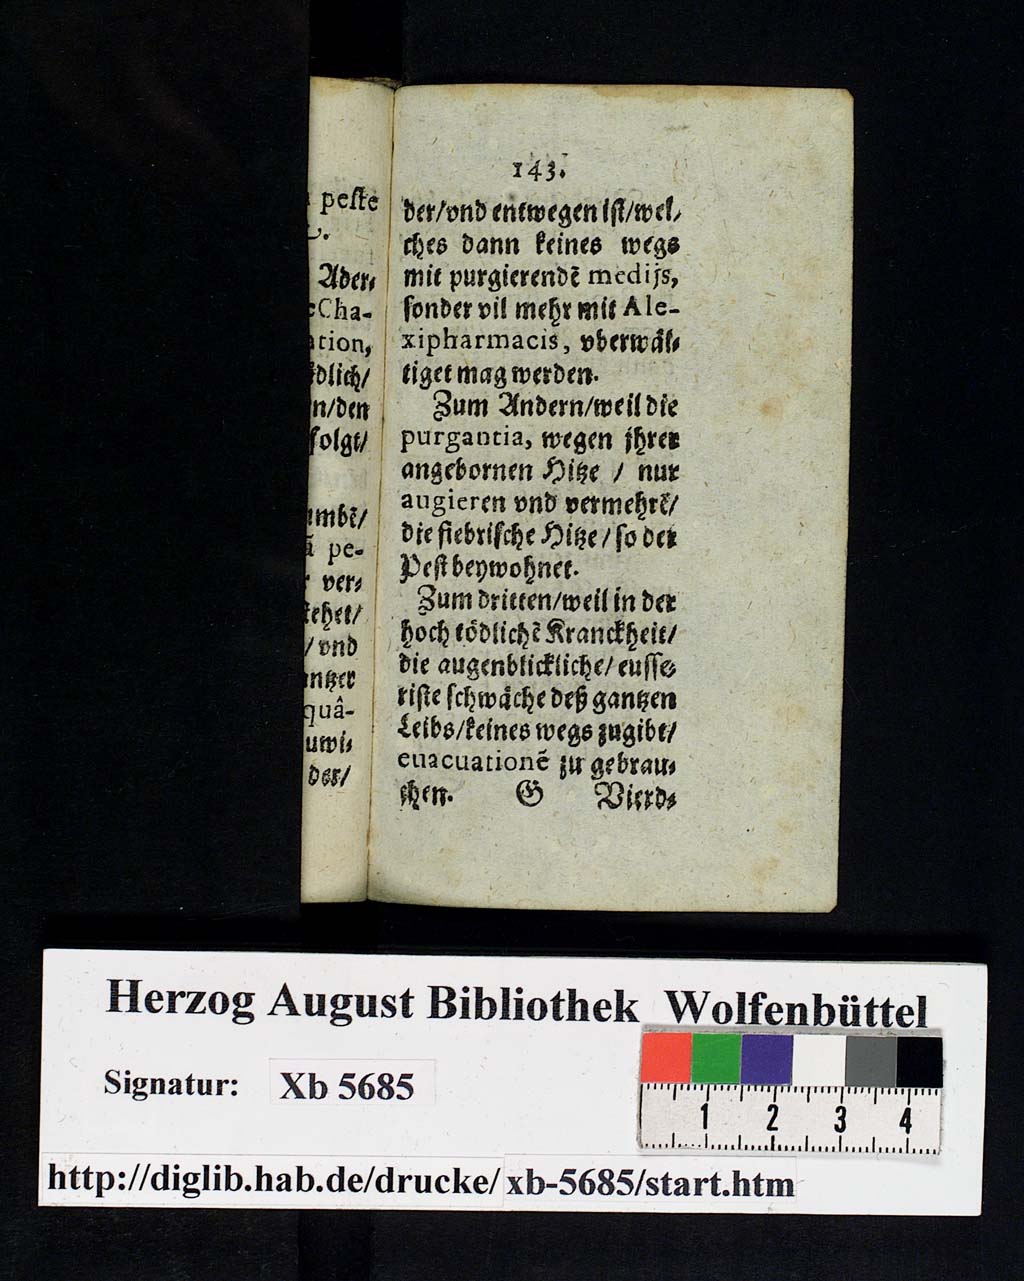 peste
Ader⸗
Cha-
ation,
dlich/
n/den
folgt/
umbẽ/
pe-
ver⸗
tehet/
/vnd
ntzer
quâ-
uwi⸗
der/
143.
der/vnd entwegen ist/wel⸗
ches dann keines wegs
mit purgierendẽ medijs,
sonder vil mehr mit Ale-
xipharmacis, vberwäl⸗
tiget mag werden.
Zum Andern/weil die
purgantia, wegen jhrer
angebornen Hitze / nur
augieren vnd vermehrẽ/
die fiebrische Hitze/so der
Pest beywohnet.
Zum dritten/weil in der
hoch tödlichẽ Kranckheit/
die augenblickliche/eusse⸗
riste schwäche deß gantzen
Leibs/keines wegs zugibt/
euacuationẽ zu gebrau⸗
chen. G Vierd⸗
Herzog August Bibliothek Wolfenbüttel
Signatur: Xb 5685
1 2 3 4
http://diglib.hab.de/drucke/xb-5685/start.htm